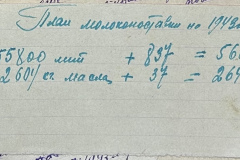 План молокопоставки на 1942
55800 лит + 837 = 56
2604 кг масла + 37 = 264